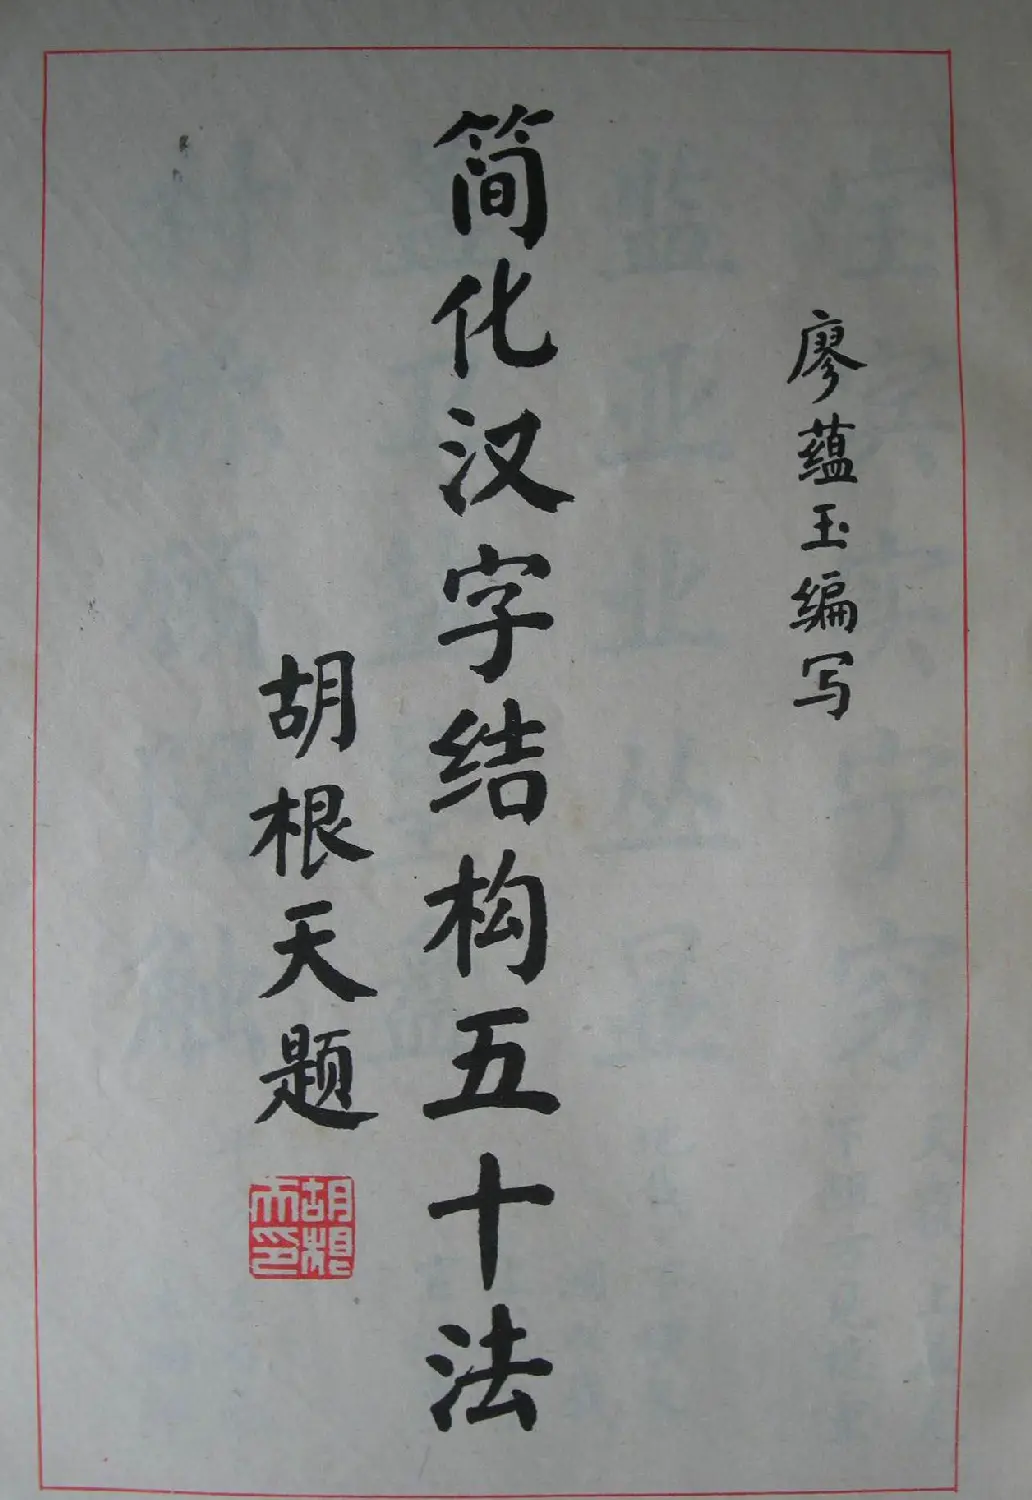 廖蕴玉编写
简化汉字结构五十法
胡根天题
胡根天印